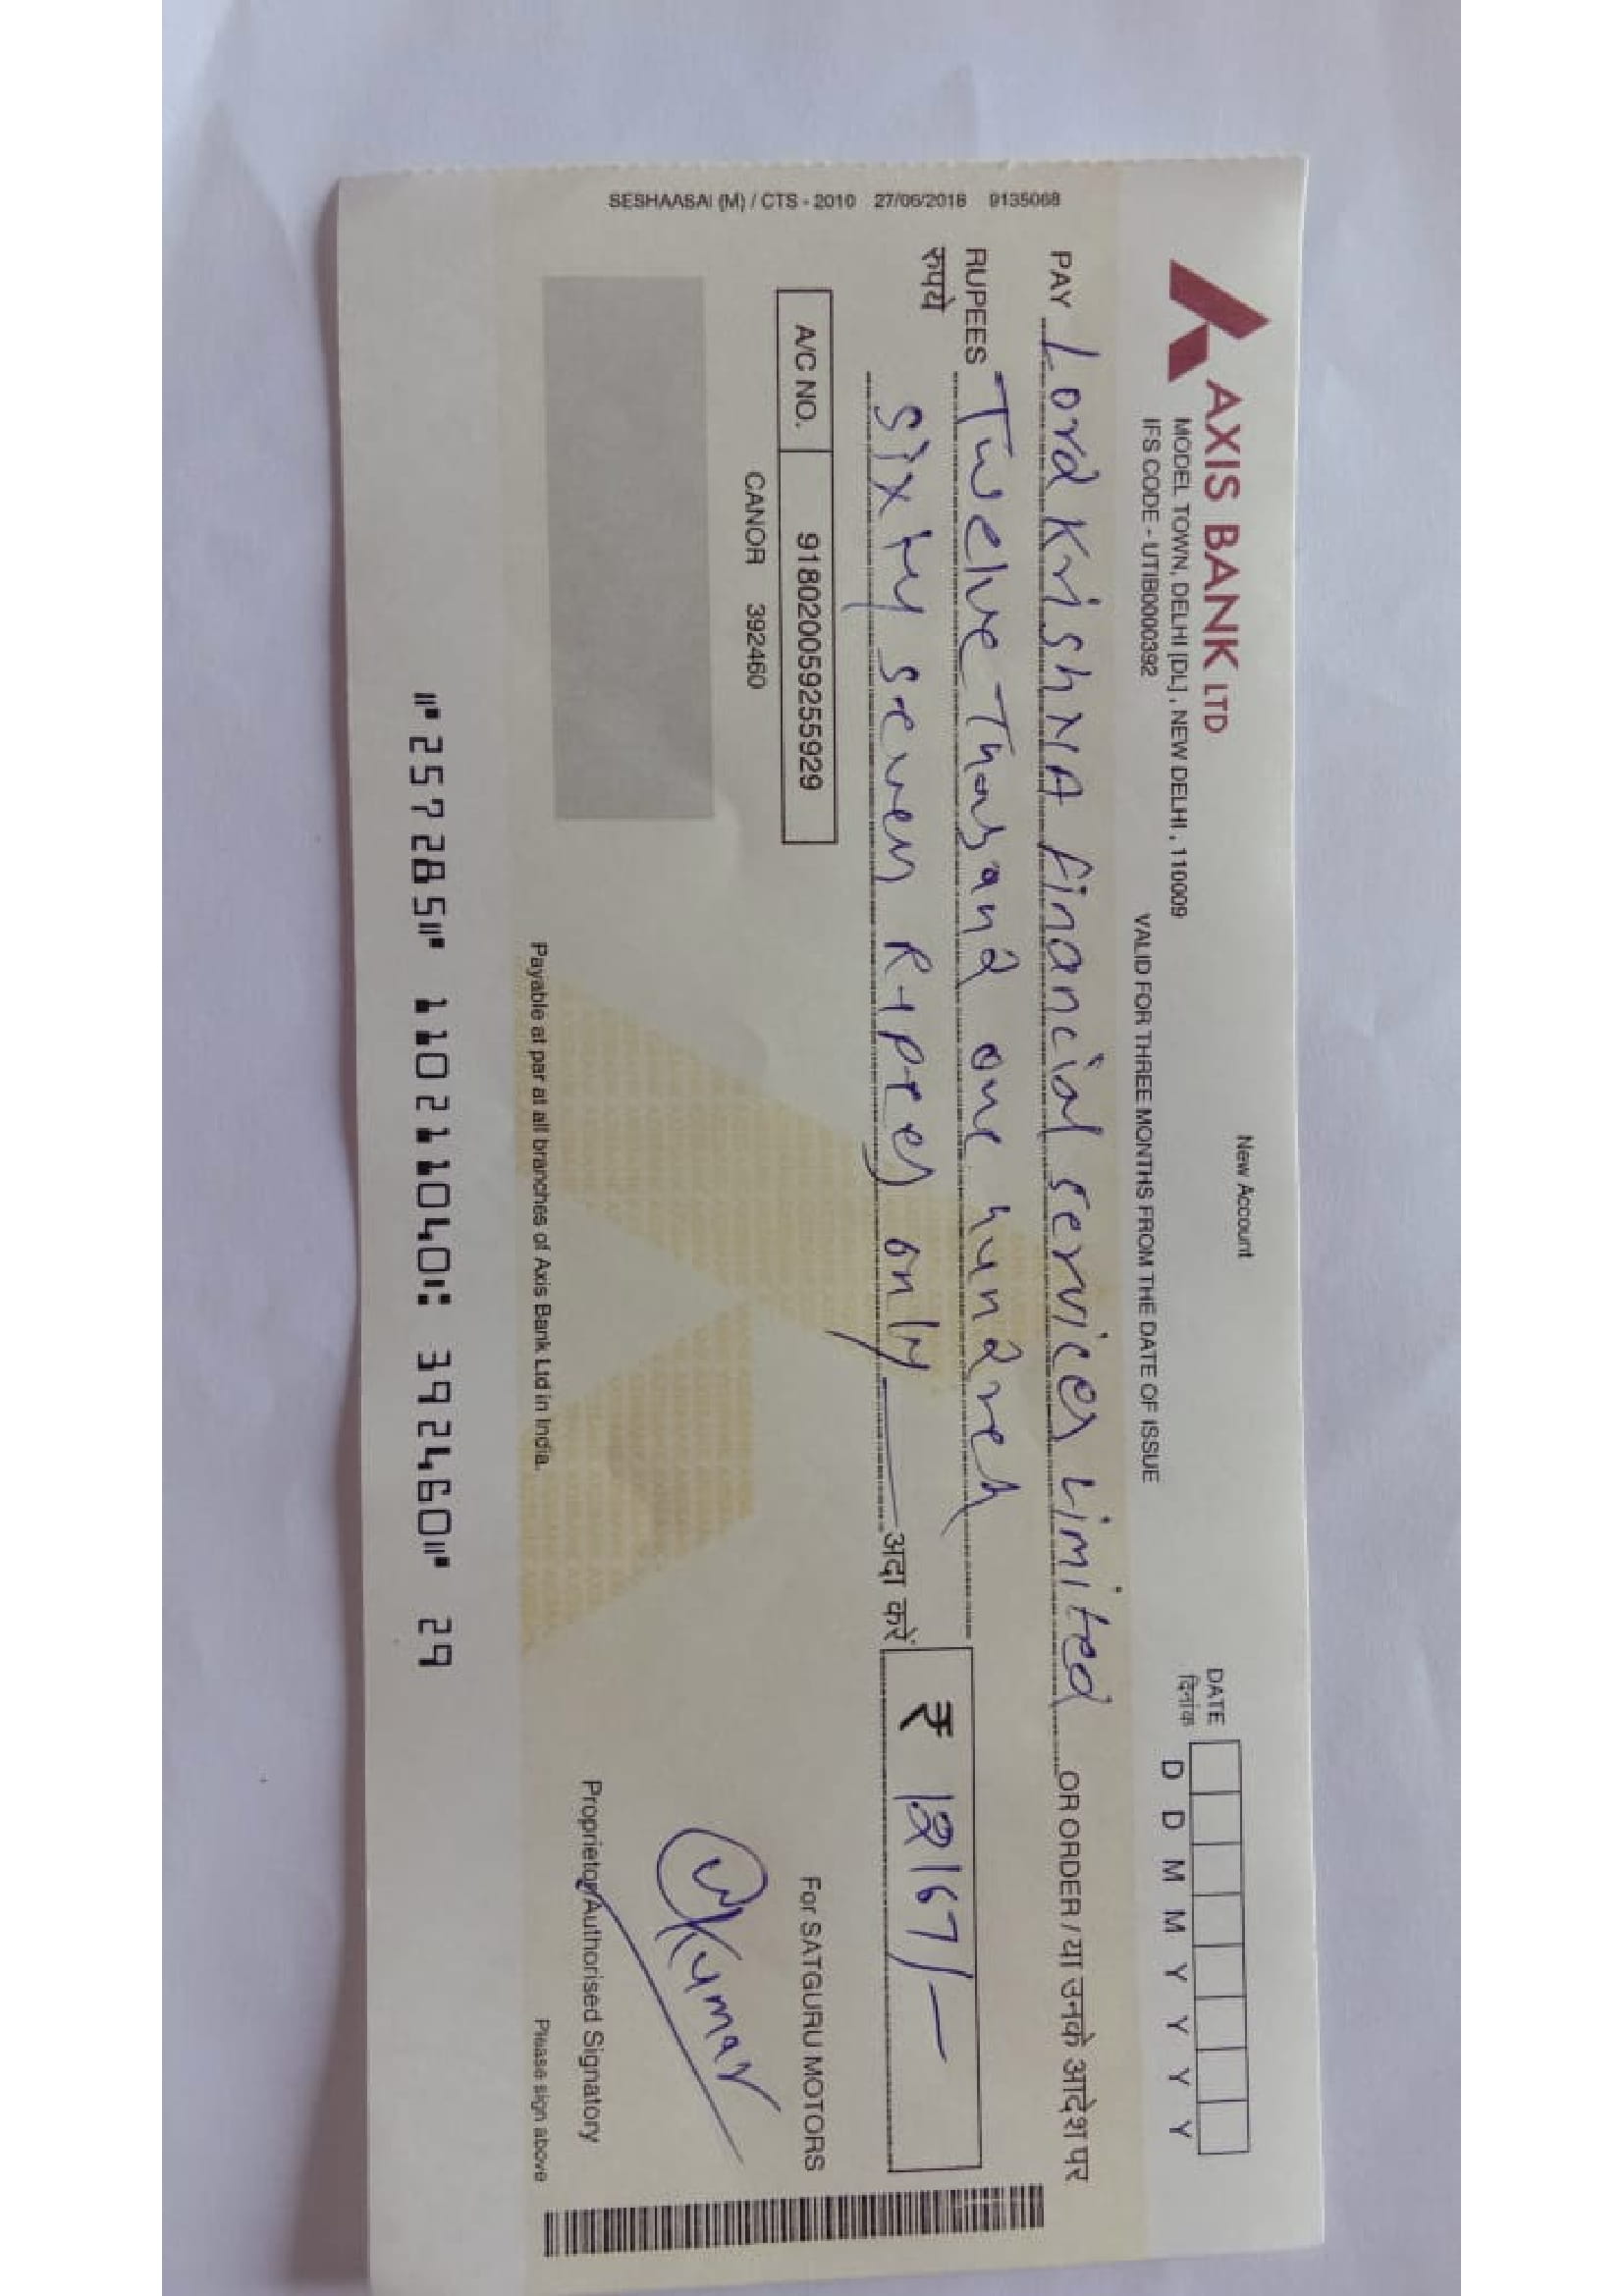 New Account
AXIS BANK LTD
MODEL TOWN, DELHI [DL], NEW DELHI, 110009
IFS CODE - UTIB0000392
VALID FOR THREE MONTHS FROM THE DATE OF ISSUE
DATE
दिनांक
D D M M Y Y Y Y
PAY Lord KrishNA financial services Limited OR ORDER / या उनके आदेश पर
RUPEES Twelve Thousand one hundred
रुपये sixty seven Rupees only अदा करें
₹ 12167/-
A/C NO. 918020059255929
CANOR 392460
For SATGURU MOTORS
Kumar
Proprietor/Authorised Signatory
Please sign above
Payable at par at all branches of Axis Bank Ltd in India.
SESHAASAI (M) / CTS - 2010 27/06/2018 9135068
⑈257285⑈ 110211040⑆ 392460⑈ 29